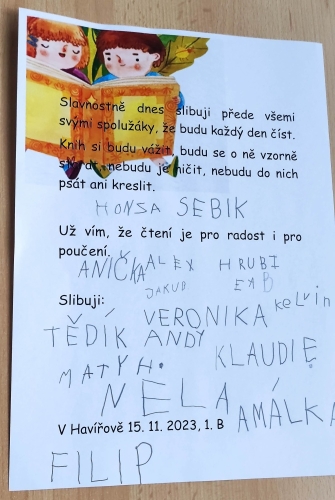 Slavnostně dnes slibuji přede všemi
svými spolužáky, že budu každý den číst.
Knih si budu vážit, budu se o ně vzorně
starat, nebudu je ničit, nebudu do nich
psát ani kreslit.
HONSA SEBIK
Už vím, že čtení je pro radost i pro
poučení.
ANIČKA ALEX HRUBI
JAKUB
Slibuji:
kelvin
TĚDÍK VERONIKA
ANDY
KLAUDIE
MATYH.
NELA
AMÁLKA
V Havířově 15. 11. 2023, 1. B
FILIP